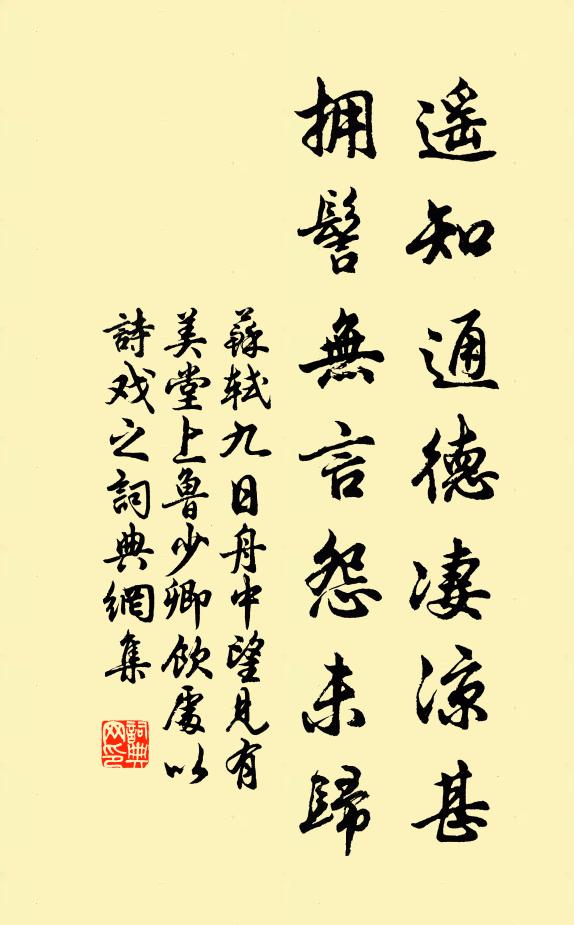 遥知通德凄涼甚
拥髻無言怨未歸
蘇軾九日舟中望見有
美堂上魯少卿飲處以
詩戏之詞典網集
詞典
网印